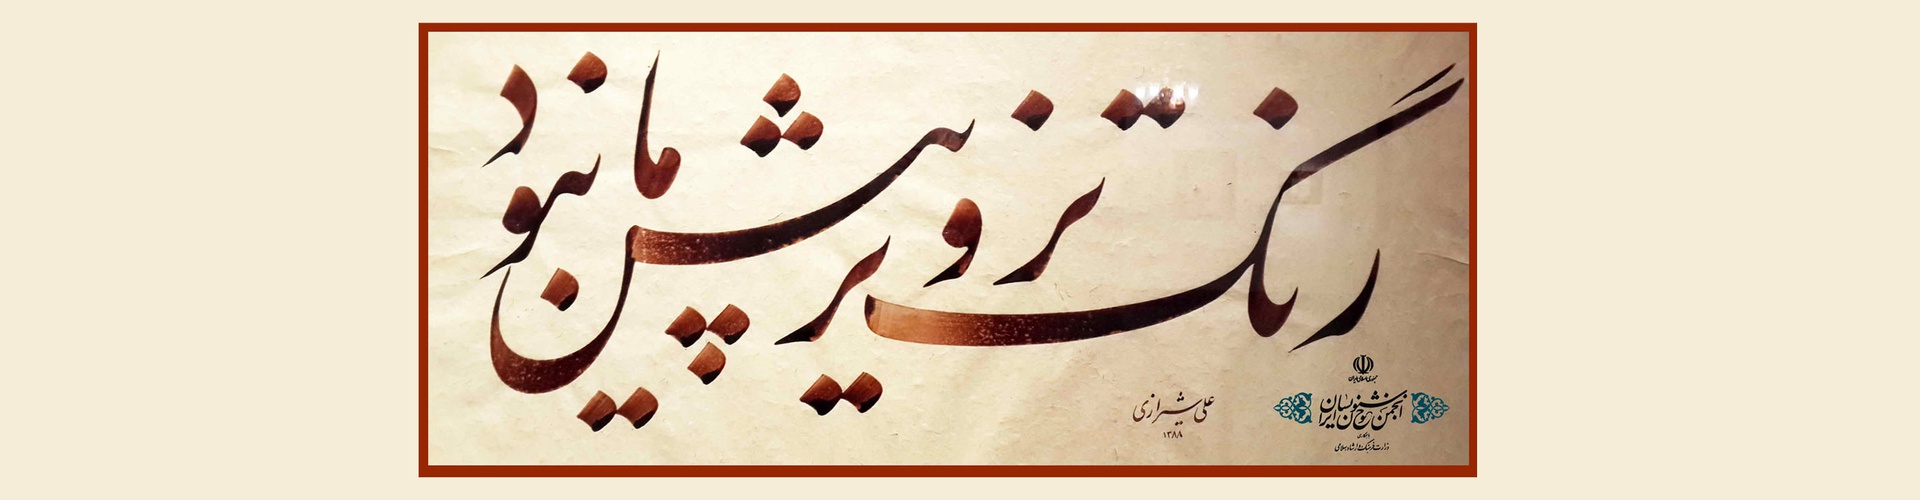 رنگ تزویر پیش ما نبود
علی شیرازی
۱۳۸۸
جمهوری اسلامی ایران
انجمن خوشنویسان ایران
وزارت فرهنگ و ارشاد اسلامی